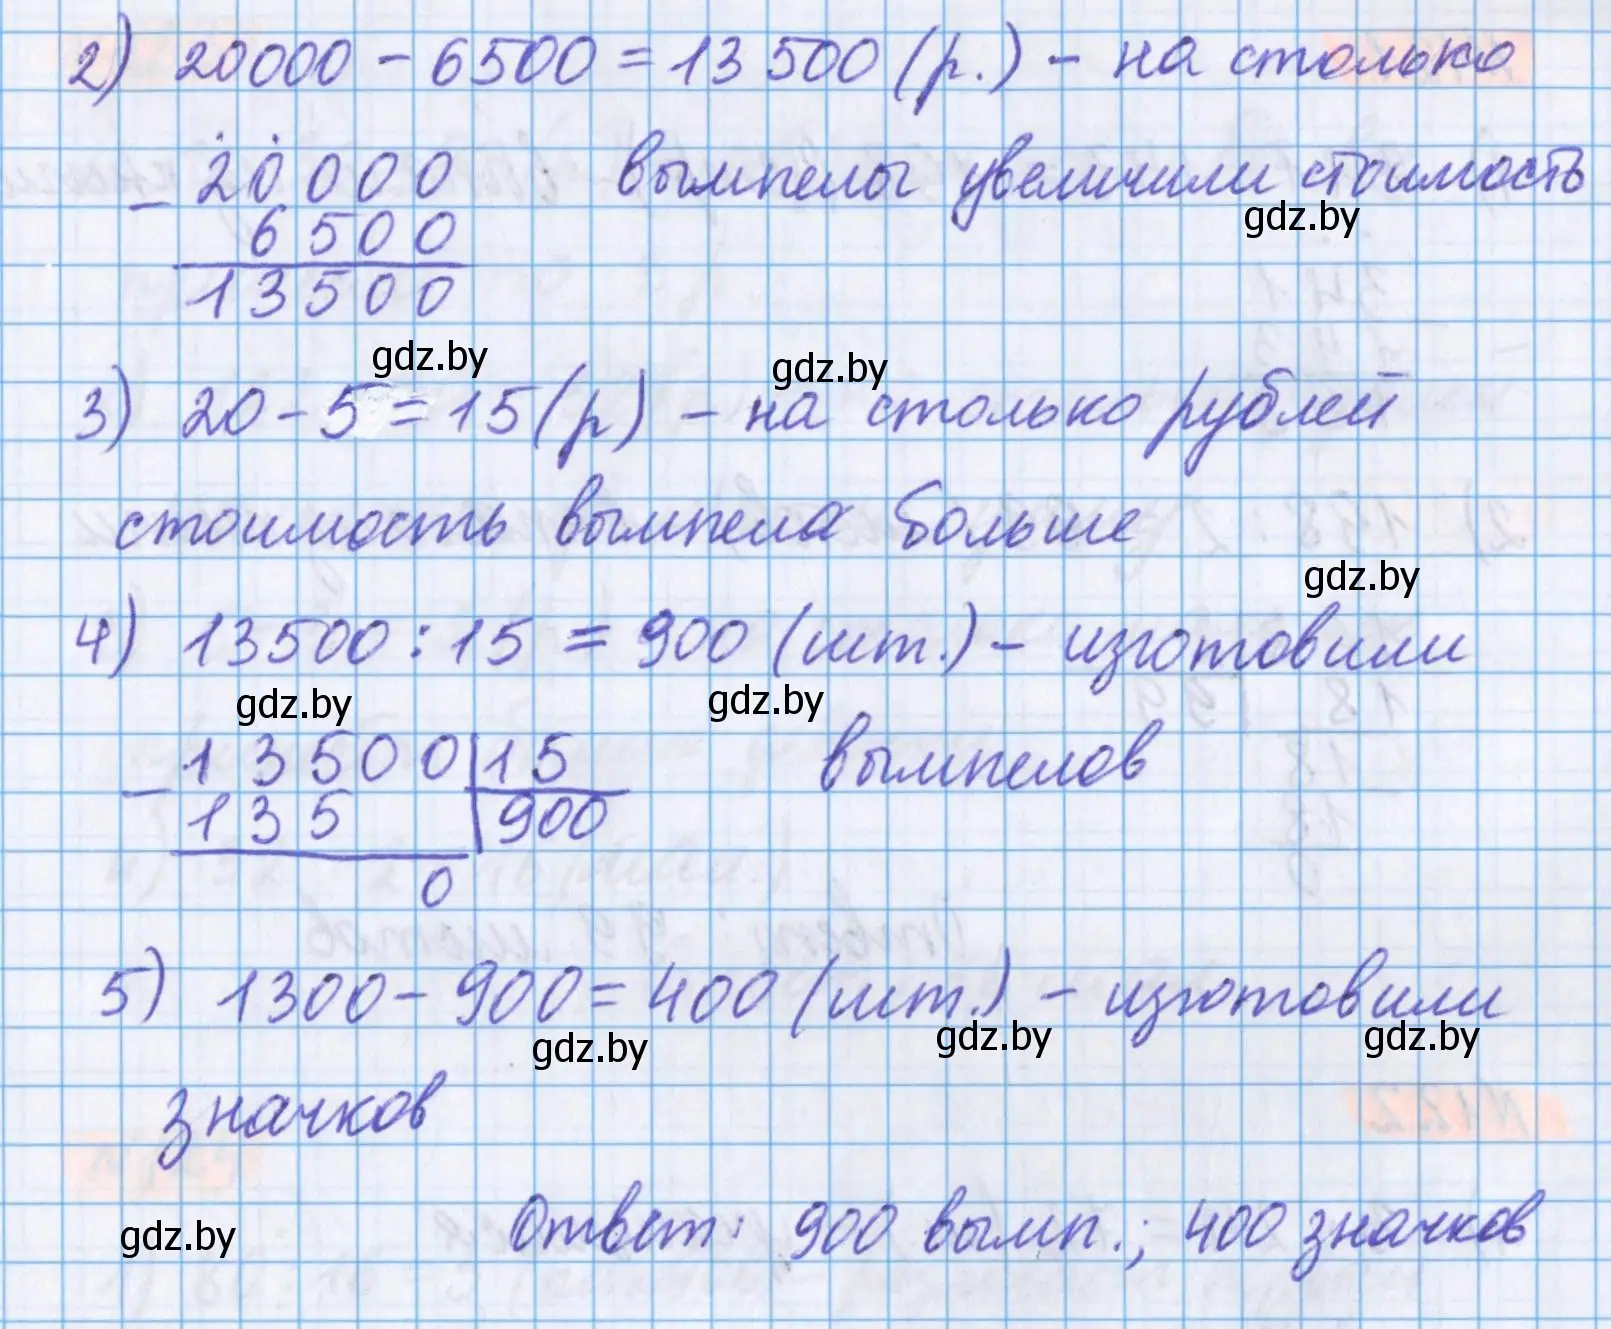 2) 20000 - 6500 = 13 500 (р.) - на столько
20000 вымпелы увеличили стоимость
gdz.by
- 6500
13500
gdz.by gdz.by
3) 20 - 5 = 15 (р) - на столько рублей
стоимость вымпела больше
gdz.by
4) 13500 : 15 = 900 (шт.) - изготовили
gdz.by gdz.by
- 13500 | 15 вымпелов
135 | 900
0
5) 1300 - 900 = 400 (шт.) - изготовили
gdz.by gdz.by gdz.by
значков
gdz.by Ответ: 900 вымп.; 400 значков